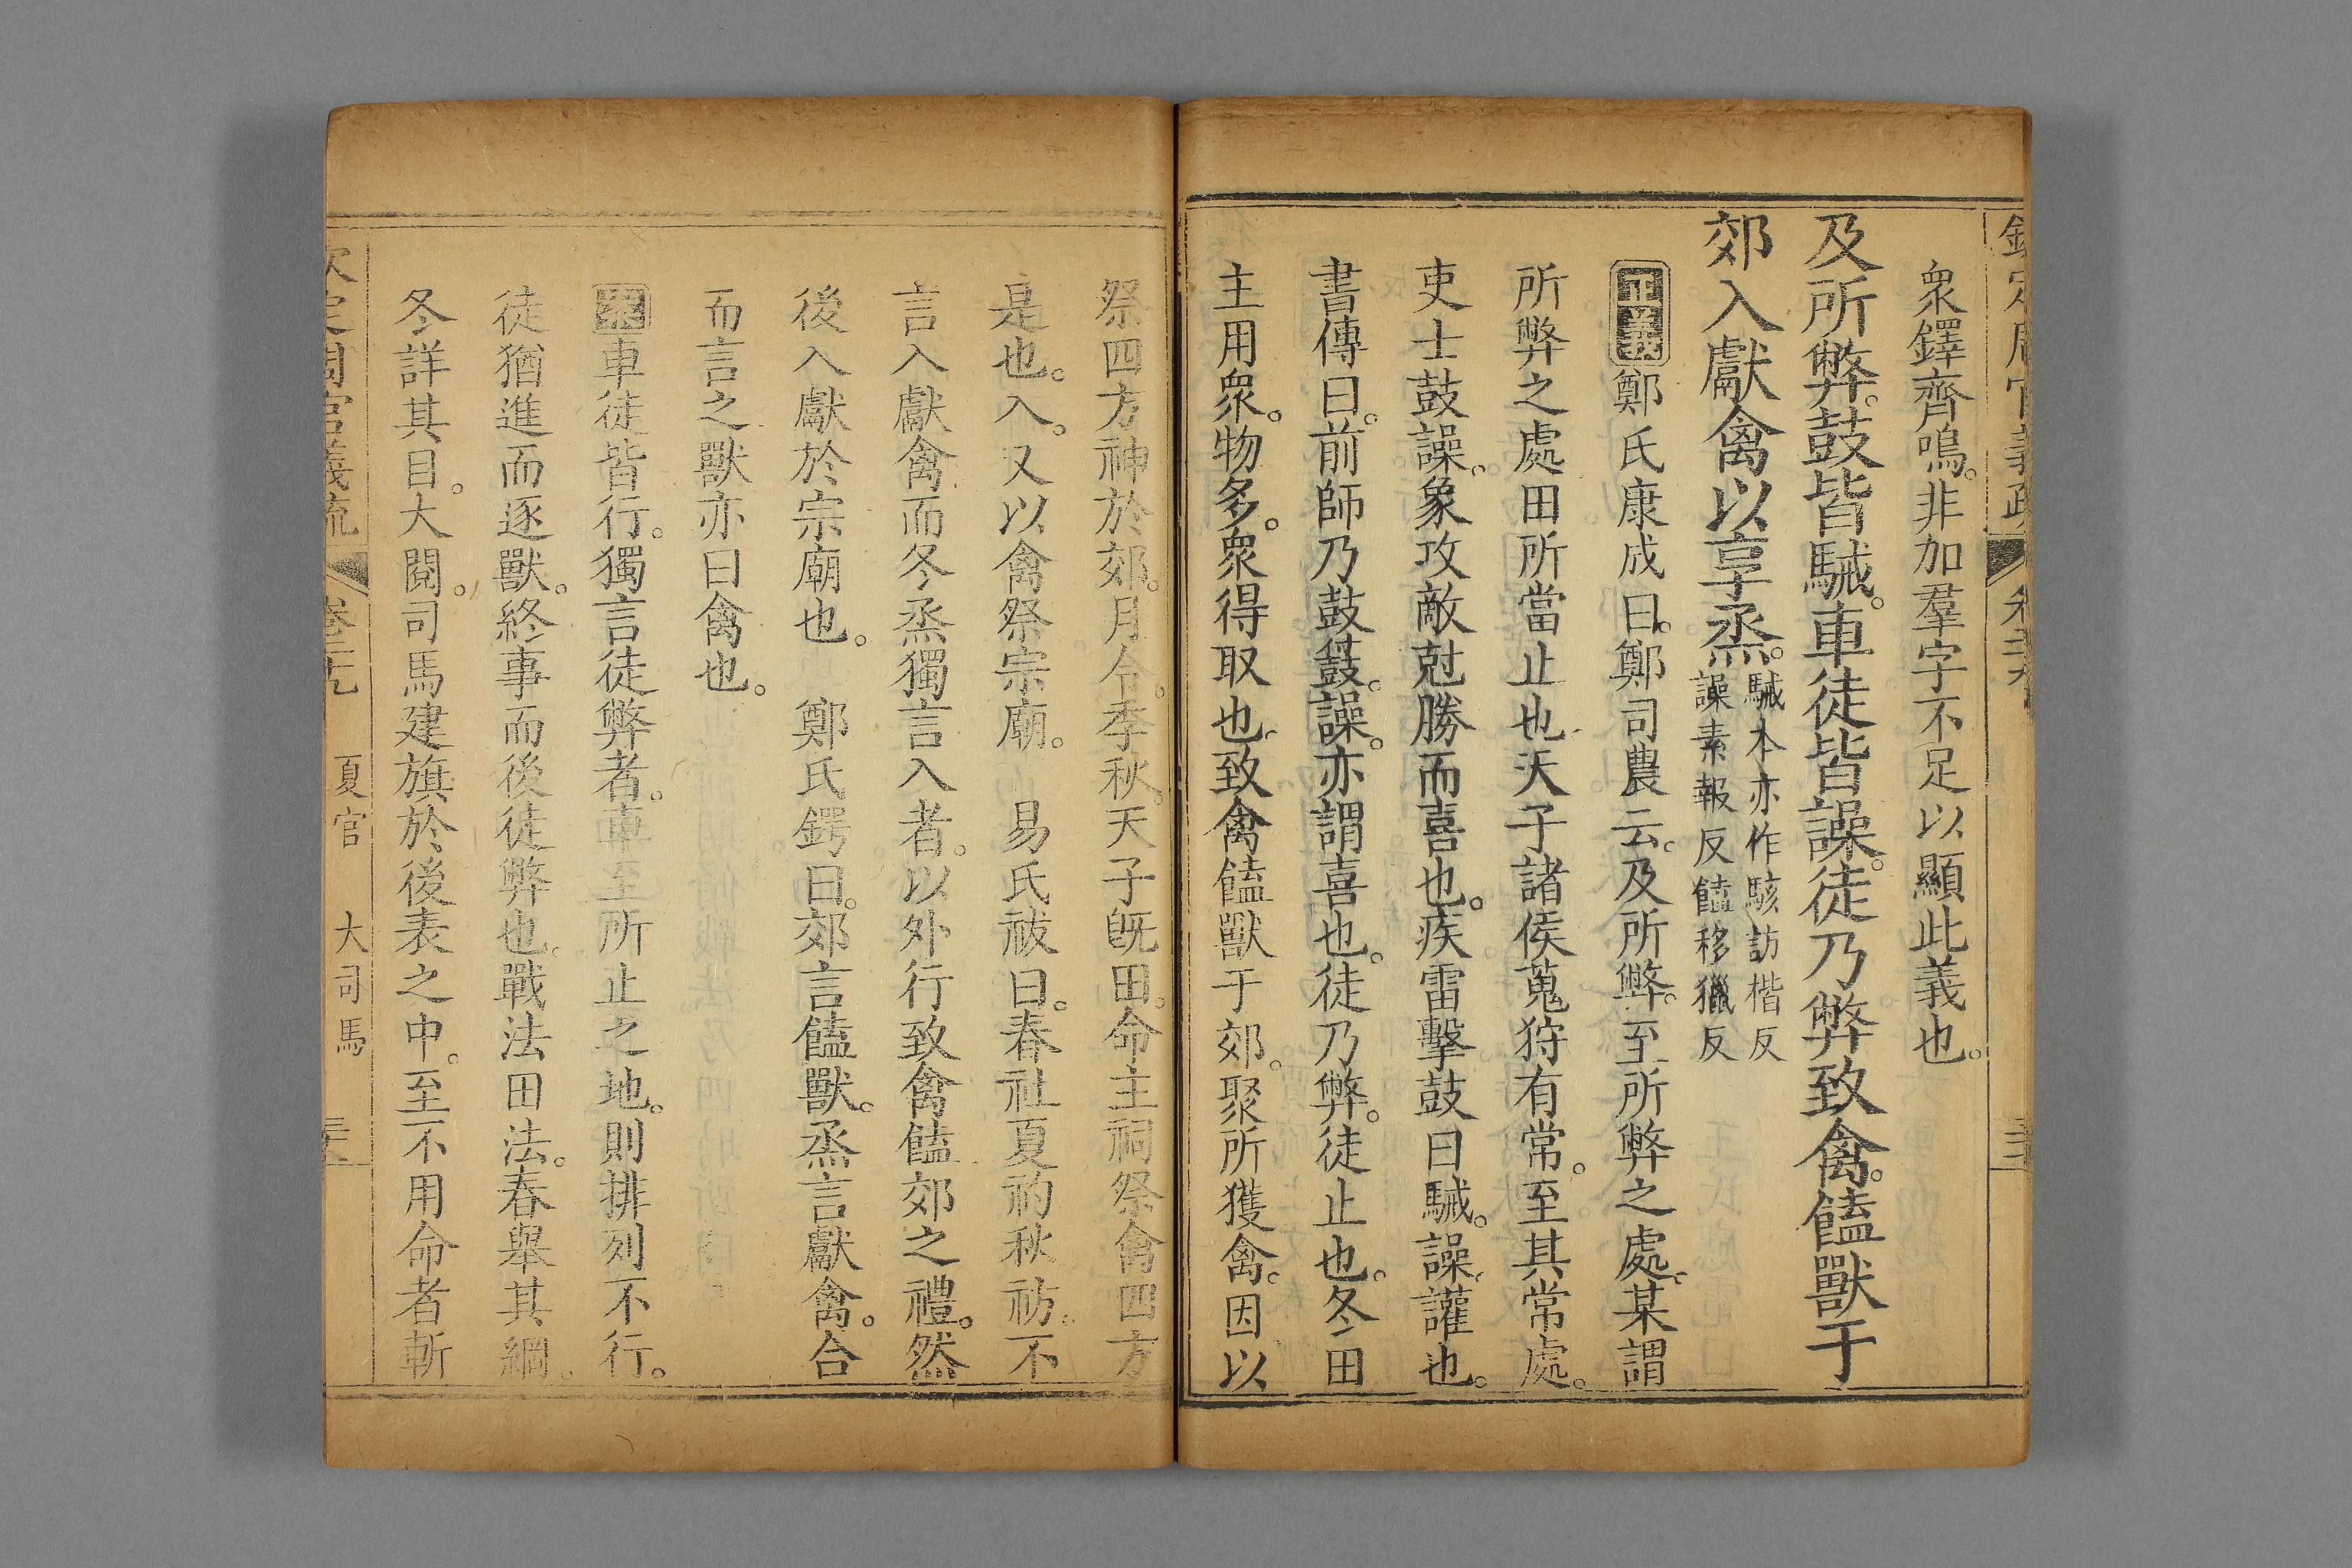 衆鐸齊鳴。非加羣字不足以顯此義也。
及所弊。鼓皆駴。車徒皆譟。徒乃弊致禽。饁獸于
郊入獻禽以享烝。駴本亦作駭訪楷反
譟素報反饁移獵反
正義鄭氏康成曰。鄭司農云。及所弊。至所弊之處。某謂
所弊之處田所當止也。天子諸侯蒐狩有常。至其常處。
吏士鼓譟。象攻敵尅勝而喜也。疾雷擊鼓曰駴。譟。讙也。
書傳曰。前師乃鼓鼖。譟。亦謂喜也。徒乃弊。徒止也。冬田
主用衆。物多。衆得取也。致禽饁獸于郊。聚所獲禽。因以
祭四方神於郊。月令。季秋。天子既田。命主祠祭禽四方
是也。入。又以禽祭宗廟。　易氏祓曰。春社夏礿秋祊。不
言入獻禽而冬烝獨言入者。以外行致禽饁郊之禮。然
後入獻於宗廟也。　鄭氏鍔曰。郊言饁獸。烝言獻禽。合
而言之獸亦曰禽也。
案車徒皆行。獨言徒弊者。車至所止之地。則排列不行。
徒猶進而逐獸。終事而後徒弊也。戰法田法。春舉其綱。
冬詳其目。大閱。司馬建旗於後表之中。至不用命者斬
欽定周官義疏　卷三十九　夏官　大司馬